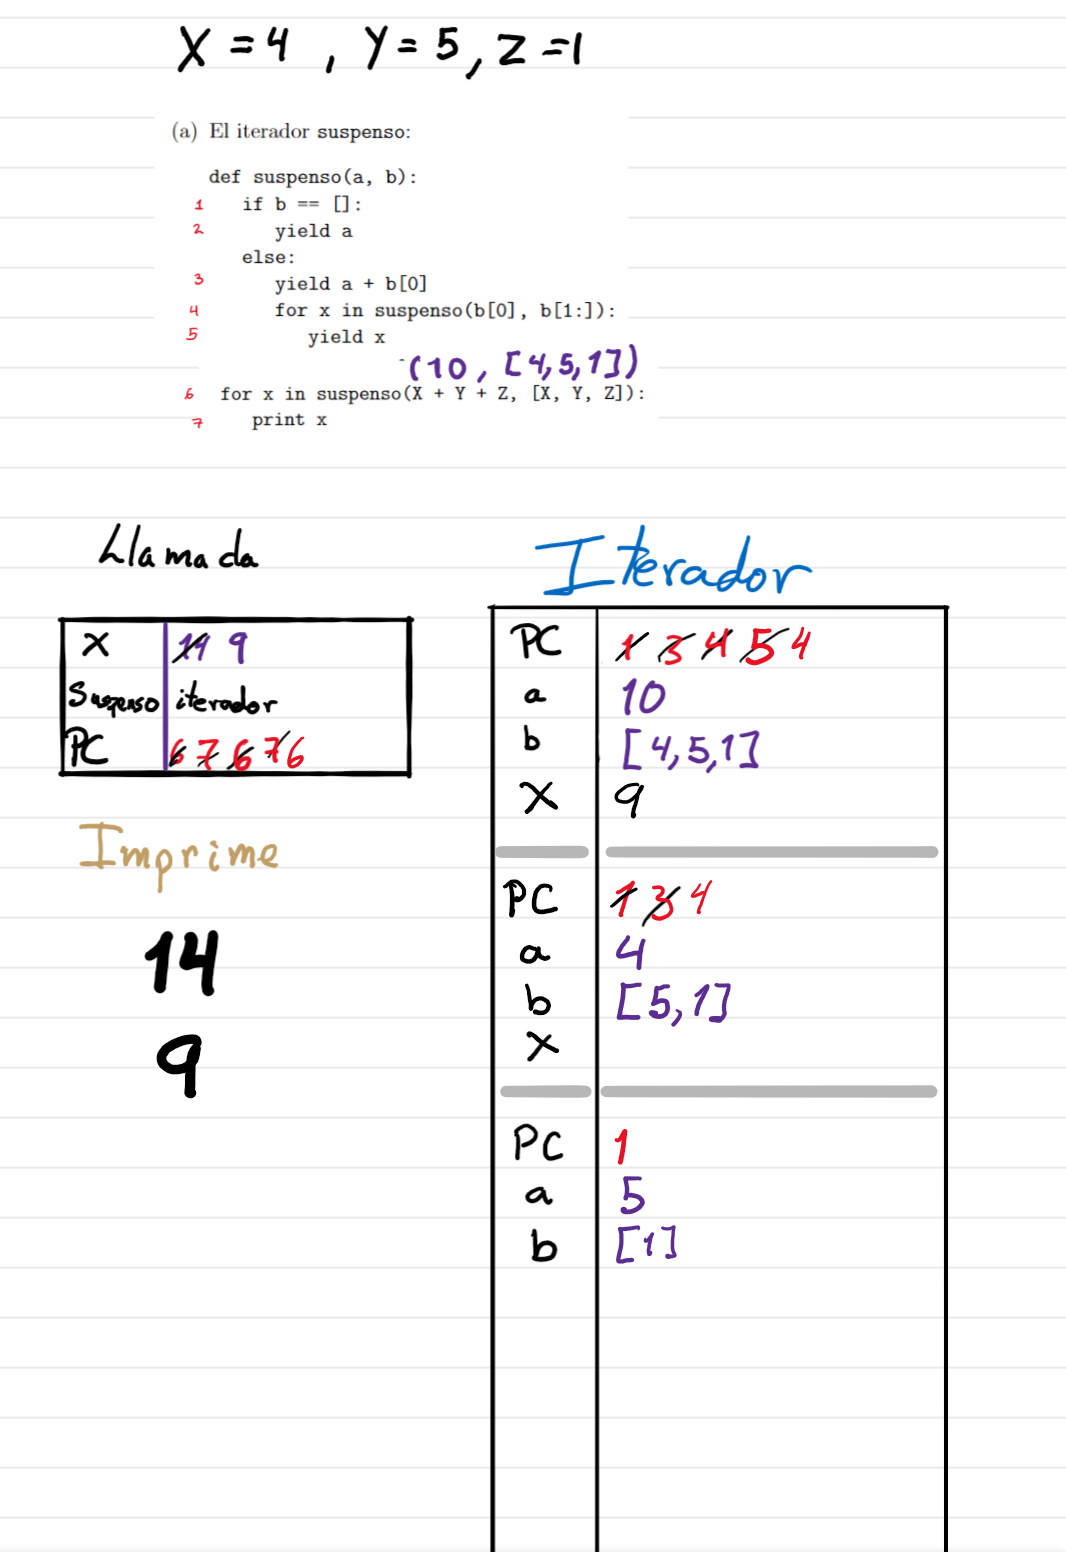 X = 4 , Y = 5 , Z = 1
(a) El iterador suspenso:
def suspenso(a, b):
1 if b == []:
2 yield a
else:
3 yield a + b[0]
4 for x in suspenso(b[0], b[1:]):
5 yield x
(10, [4,5,1])
6 for x in suspenso(X + Y + Z, [X, Y, Z]):
7 print x
Llamada
X 14 9
Suspenso iterador
PC 6 7 6 7 6
Imprime
14
9
Iterador
PC 1 3 4 5 4
a 10
b [4,5,1]
X 9
PC 1 3 4
a 4
b [5,1]
X
PC 1
a 5
b [1]